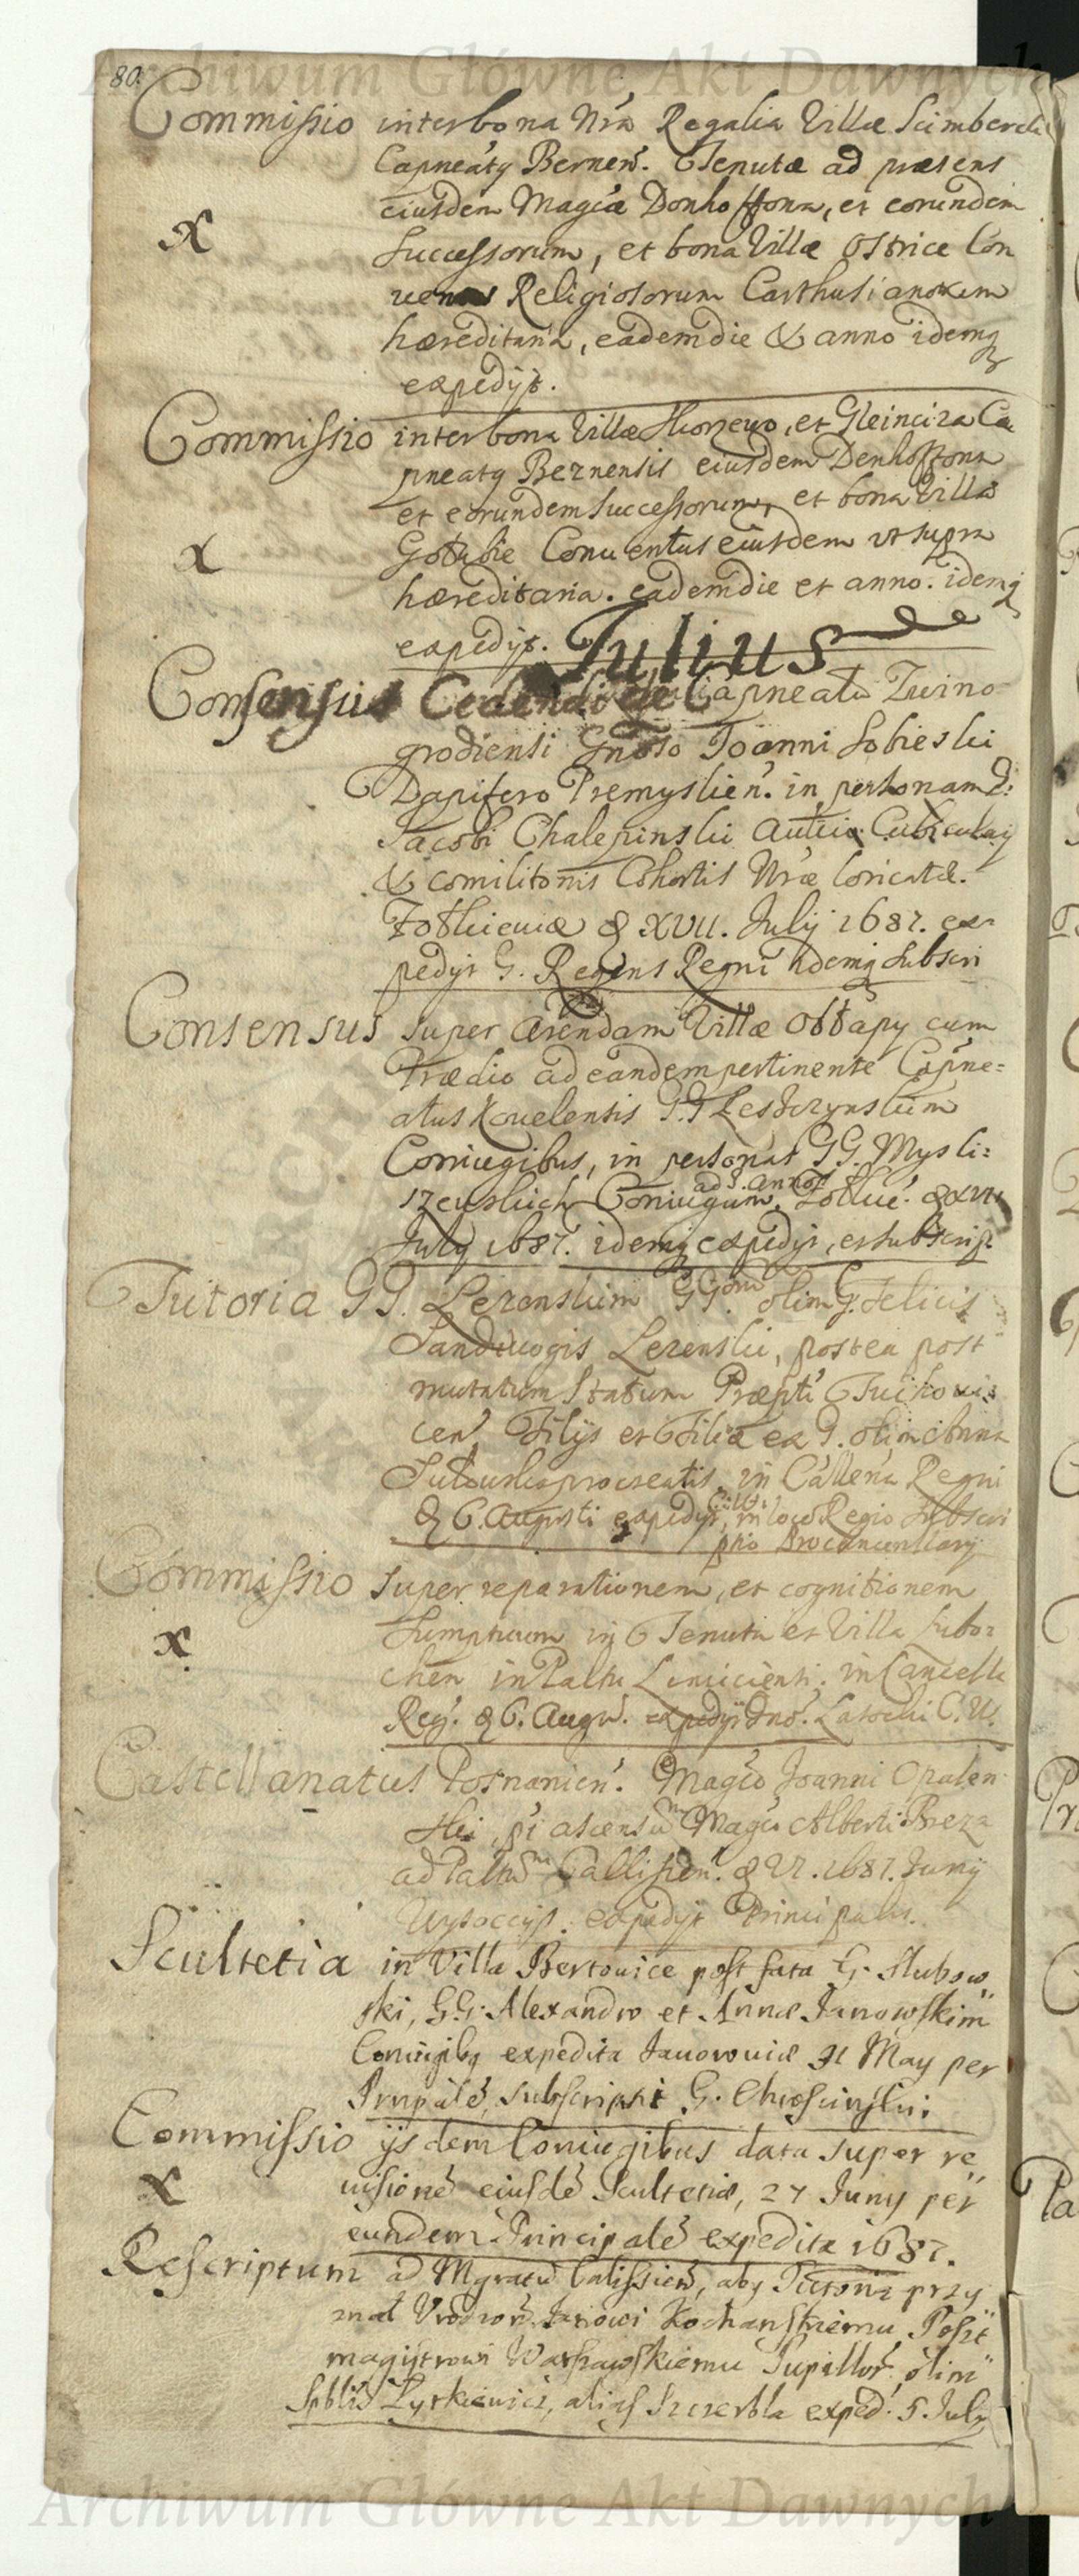 Archiwum Główne Akt Dawnych
80.
Commissio inter bona Nra Regalia Villæ Scimberck
Capneatq Bernen. Tenutæ ad præsens
eiusdem Magcæ Donhoffona, et eorundem
Successorum, et bona Villæ Ostrice Con
X
Religiosorum Carthusianorum
hæreditaria, eadem die & anno idemq
expedijt.
Commissio inter bona Villæ et Ca
pneatq Bernensis eiusdem Denhoffona
et eorundem Successorum, et bona Villæ
X
Conventus eiusdem ut supra
hæreditaria. eadem die et anno. idemq
expedijt. Julius
Consensus Cedendi de Capneatu Zwino
grodiensi Gnoso Joanni Sobieski
Dapifero Premyslien. in personam G:
Jacobi Chalepinski Aulici Cubicularij
& comilitonis Cohortis Nræ loricatæ.
Zolkieuiæ d XVII. Julij 1687. ex
pedijt G. Regens Regni idemq Subscri
Consensus super Arendam Villæ Obbapy cum
Prædio ad eandem pertinente Capne=
atus Kouelensis G.G Leszczynskim
Coniugibus, in personas GG. Mysli=
szewskich Coniugum. ad 3. annos Zolkie. d XVII
July 1687. idemq expedijt, et subscrip
Tutoria GG. Lezenskim GGorum olim G. Felicis
Sandiuogis Lezenski, postea post
mutatum Statum Præpti
cen Filijs et Filiæ ex G. olim Anna
procreatis, in Callena Regni
d 6. Augusti expedijt, in loco Regio Subscri
ptio Procancellarij
Commissio super reparationem, et cognitionem
X
Sumptuum in Tenuta et Villa Lubo=
chen in Paltu in Cancella
Reg. d 6. Augu. expedijt Dno. C.W.
Castellanatus Posnanien. Magco Joanni Opalen
ski, pt ascensum Magci Alberti Breza
ad Paltum Callisien. d VI. 1687. Junij
expedijt Principalis.
Scultetia in Villa Bertouice post fata G. Slubow
ski, GG. Alexandro et Annæ Janowskim
Coniugibq expedita Jauorouiæ 31 May per
Prnpale, subscripsit G. Chrosciński.
Commissio ijsdem Coniugibus data super re
X
uisione eiusde Scultetiæ, 27 Juny per
eundem Principale expedita 1687.
Rescriptum ad Mgratu Calissien, aby Tutoria przy
znał Vrodzon. Janowi Kochanskiemu Poszt
magistrowi Warszawskiemu Pupillor, olim
Spblis Zyrkiewicz, alias Szczerbla exped. 5. July
Archiwum Główne Akt Dawnych